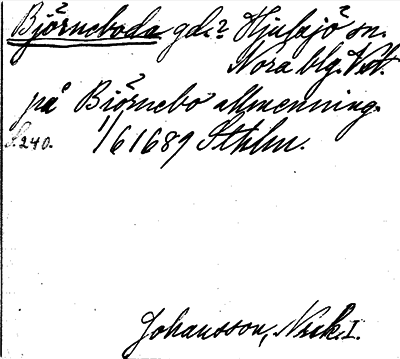 Björneboda gd.? Hjulsjö sn.
Nora blg. Vstl.
på Björnebo allmenning.
s. 240. 1/6 1689 Sthlm.
Johansson, Nork. I.